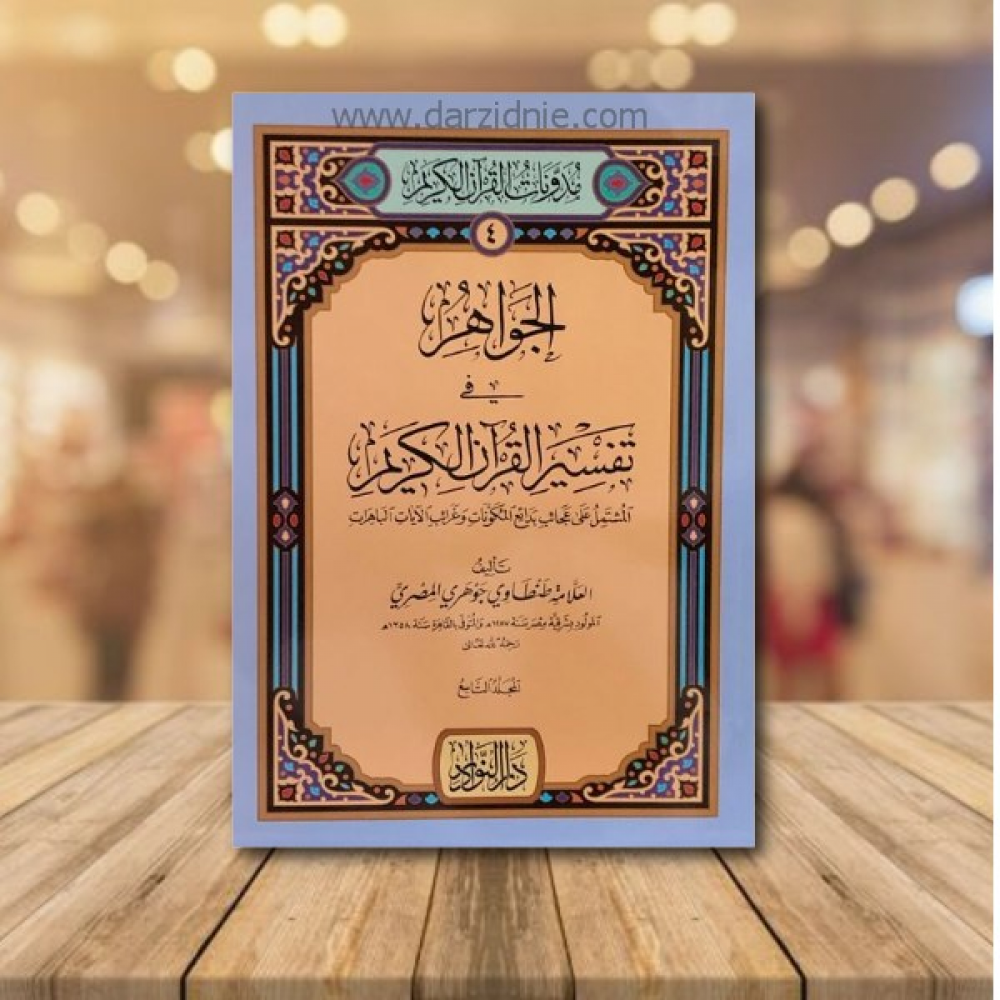 www.darzidnie.com
مُدَوَّنَاتُ القُرْآنِ الكَرِيمِ
٤
الجَوَاهِرُ
في
تَفْسِيْرِ القُرْآنِ الكَرِيمِ
المُشْتَمِلُ عَلَى عَجَائِبِ بَدَائِعِ المُكَوَّنَاتِ وَغَرَائِبِ الآيَاتِ البَاهِرَاتِ
تَأليفُ
العَلَّامَة طَنْطَاوِي جَوْهَرِي المِصْرِيِّ
المَولُود بِشَرْقِيَّةِ مِصْرَ سَنَة ١٢٨٧ھ وَالمُتَوَفَّى بِالقَاهِرَةِ سَنَة ١٣٥٨ھ
رَحِمَهُ اللهُ تَعَالَى
المُجَلَّدُ التَّاسِعُ
دَارُ النَّوَادِرِ